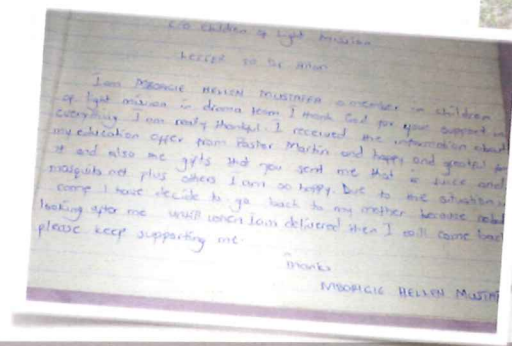 C/O children of light mission
LETTER TO BE
I am MBORIGIE HELLEN MUSTAFA a member in children
of light mission in drama team I thank God for your support in
everything I am really thankful. I received the information about
my education offer from Paster Martin and happy and greatful for
it and also the gifts that you sent me that is juice and
mosquito net plus others I am so happy. Due to the situation in
camp I have decide to go back to my mother because nobody
looking after me untill when I am delivered then I will come back
please keep supporting me.
Thanks
MBORIGIE HELLEN MUSTAFA